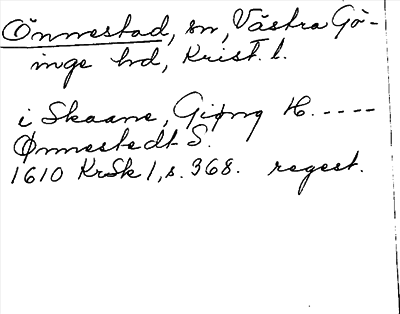 Önnestad, sn, Västra Gö-
inge hd, Krist. l.
i Skaane, Giøng H. -----
Ønnestedt S.
1610 KrSk 1, s. 368. regest.